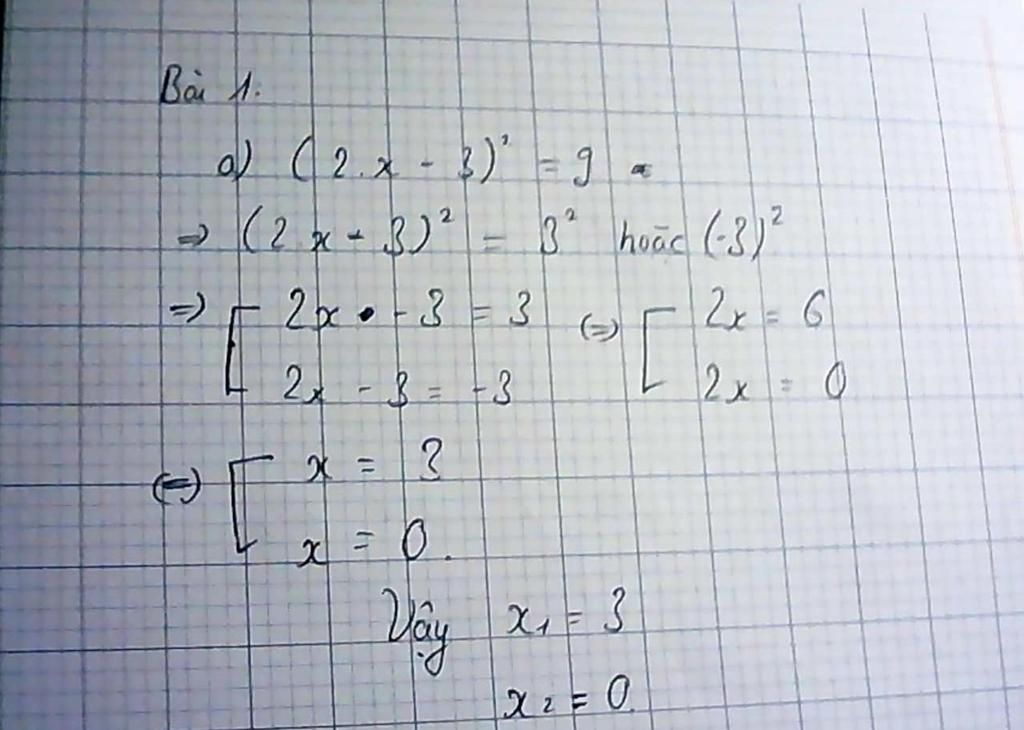 Bài 1.
a) (2.x - 3)² = 9
=> (2x - 3)² = 3² hoặc (-3)²
=> [ 2x - 3 = 3 (=) [ 2x = 6
2x - 3 = -3 2x = 0
(=) [ x = 3
x = 0.
Vậy x₁ = 3
x₂ = 0